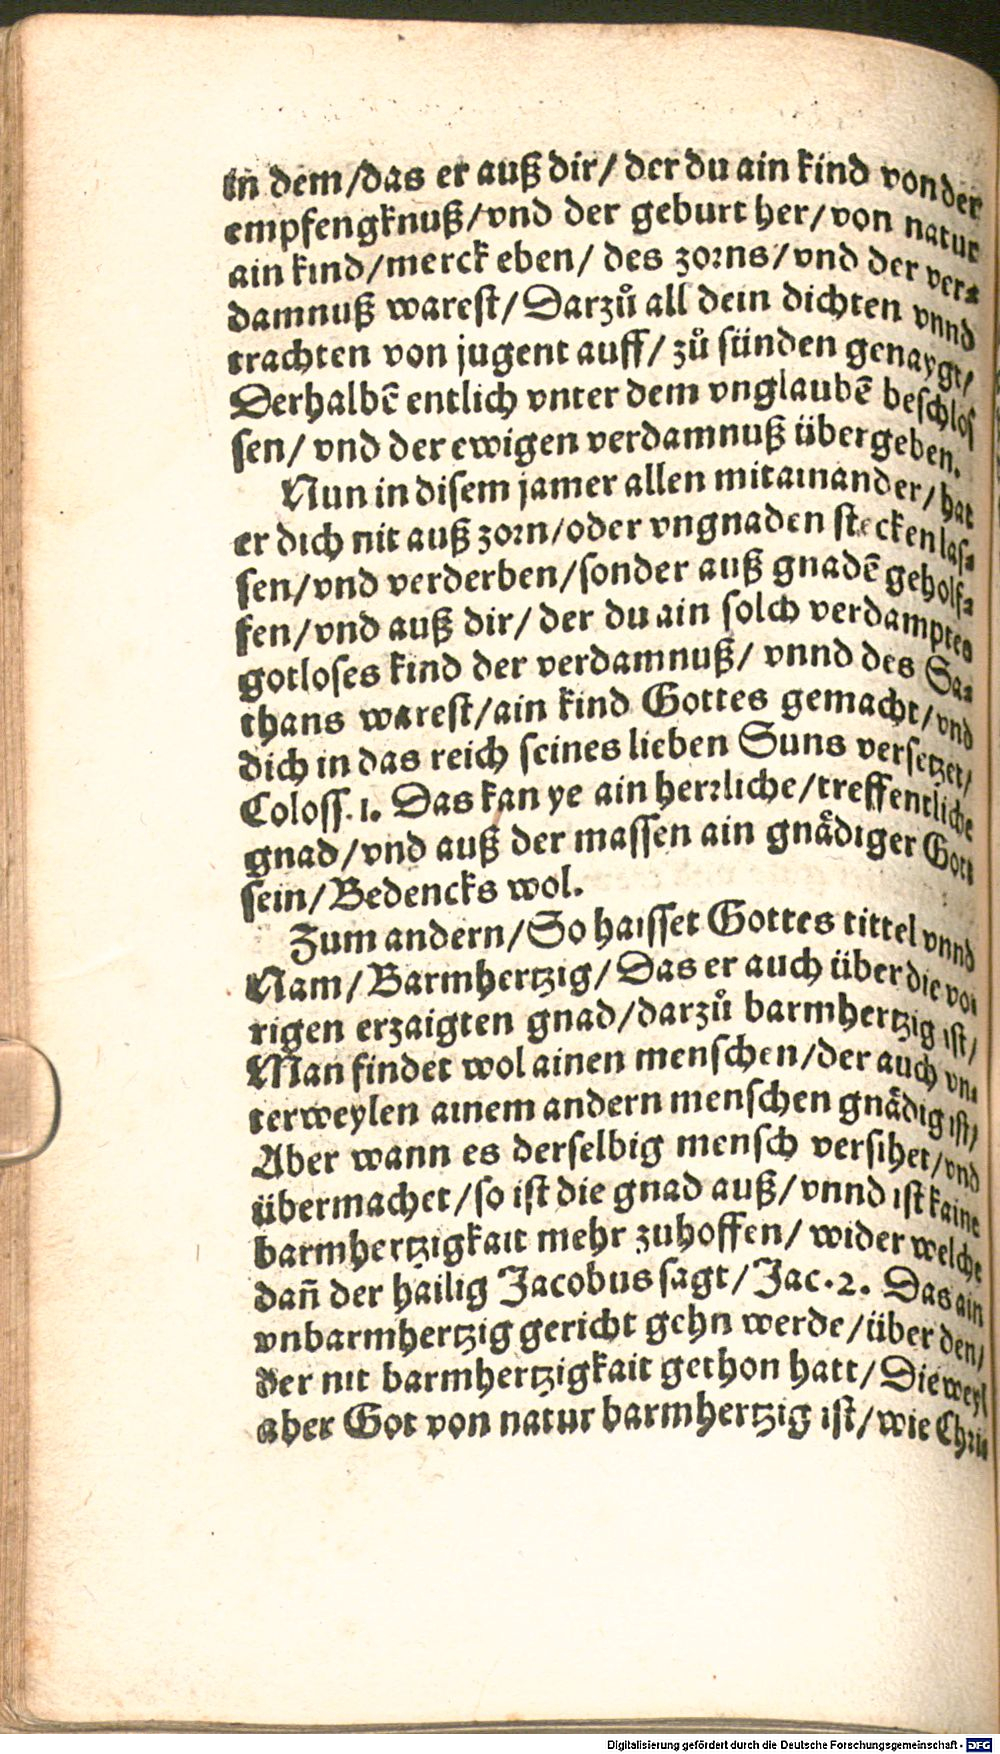 in dem/das er auß dir/ der du ain kind von der
empfengknuß/vnd der geburt her/von natur
ain kind/merck eben/ des zorns/vnd der ver⸗
damnuß warest/Darzuͦ all dein dichten vnnd
trachten von jugent auff/ zuͦ sünden genaygt/
Derhalbē entlich vnter dem vnglaubē beschlos
sen/ vnd der ewigen verdamnuß übergeben.
Nun in disem jamer allen mitainander/hat
er dich nit auß zorn/oder vngnaden stecken las⸗
sen/vnd verderben/sonder auß gnadē geholf⸗
fen/vnd auß dir/ der du ain solch verdamptes
gotloses kind der verdamnuß/ vnnd des Sa⸗
thans warest/ain kind Gottes gemacht/vnd
dich in das reich seines lieben Suns versetzet/
Coloss. 1. Das kan ye ain herrliche/treffentliche
gnad/vnd auß der massen ain gnaͤdiger Gott
sein/Bedencks wol.
Zum andern/So haisset Gottes tittel vnnd
Nam/Barmhertzig/Das er auch über die vo⸗
rigen erzaigten gnad/darzuͦ barmhertzig ist/
Man findet wol ainen menschen/der auch vn⸗
terweylen ainem andern menschen gnaͤdig ist/
Aber wann es derselbig mensch versihet/vnd
übermachet/so ist die gnad auß/vnnd ist kaine
barmhertzigkait mehr zuhoffen/ wider welche
dañ der hailig Jacobus sagt/Jac.2. Das ain
vnbarmhertzig gericht gehn werde/über den/
der nit barmhertzigkait gethon hatt/ Die weyl
aber Got von natur barmhertzig ist/wie Chri⸗
Digitalisierung gefördert durch die Deutsche Forschungsgemeinschaft - DFG